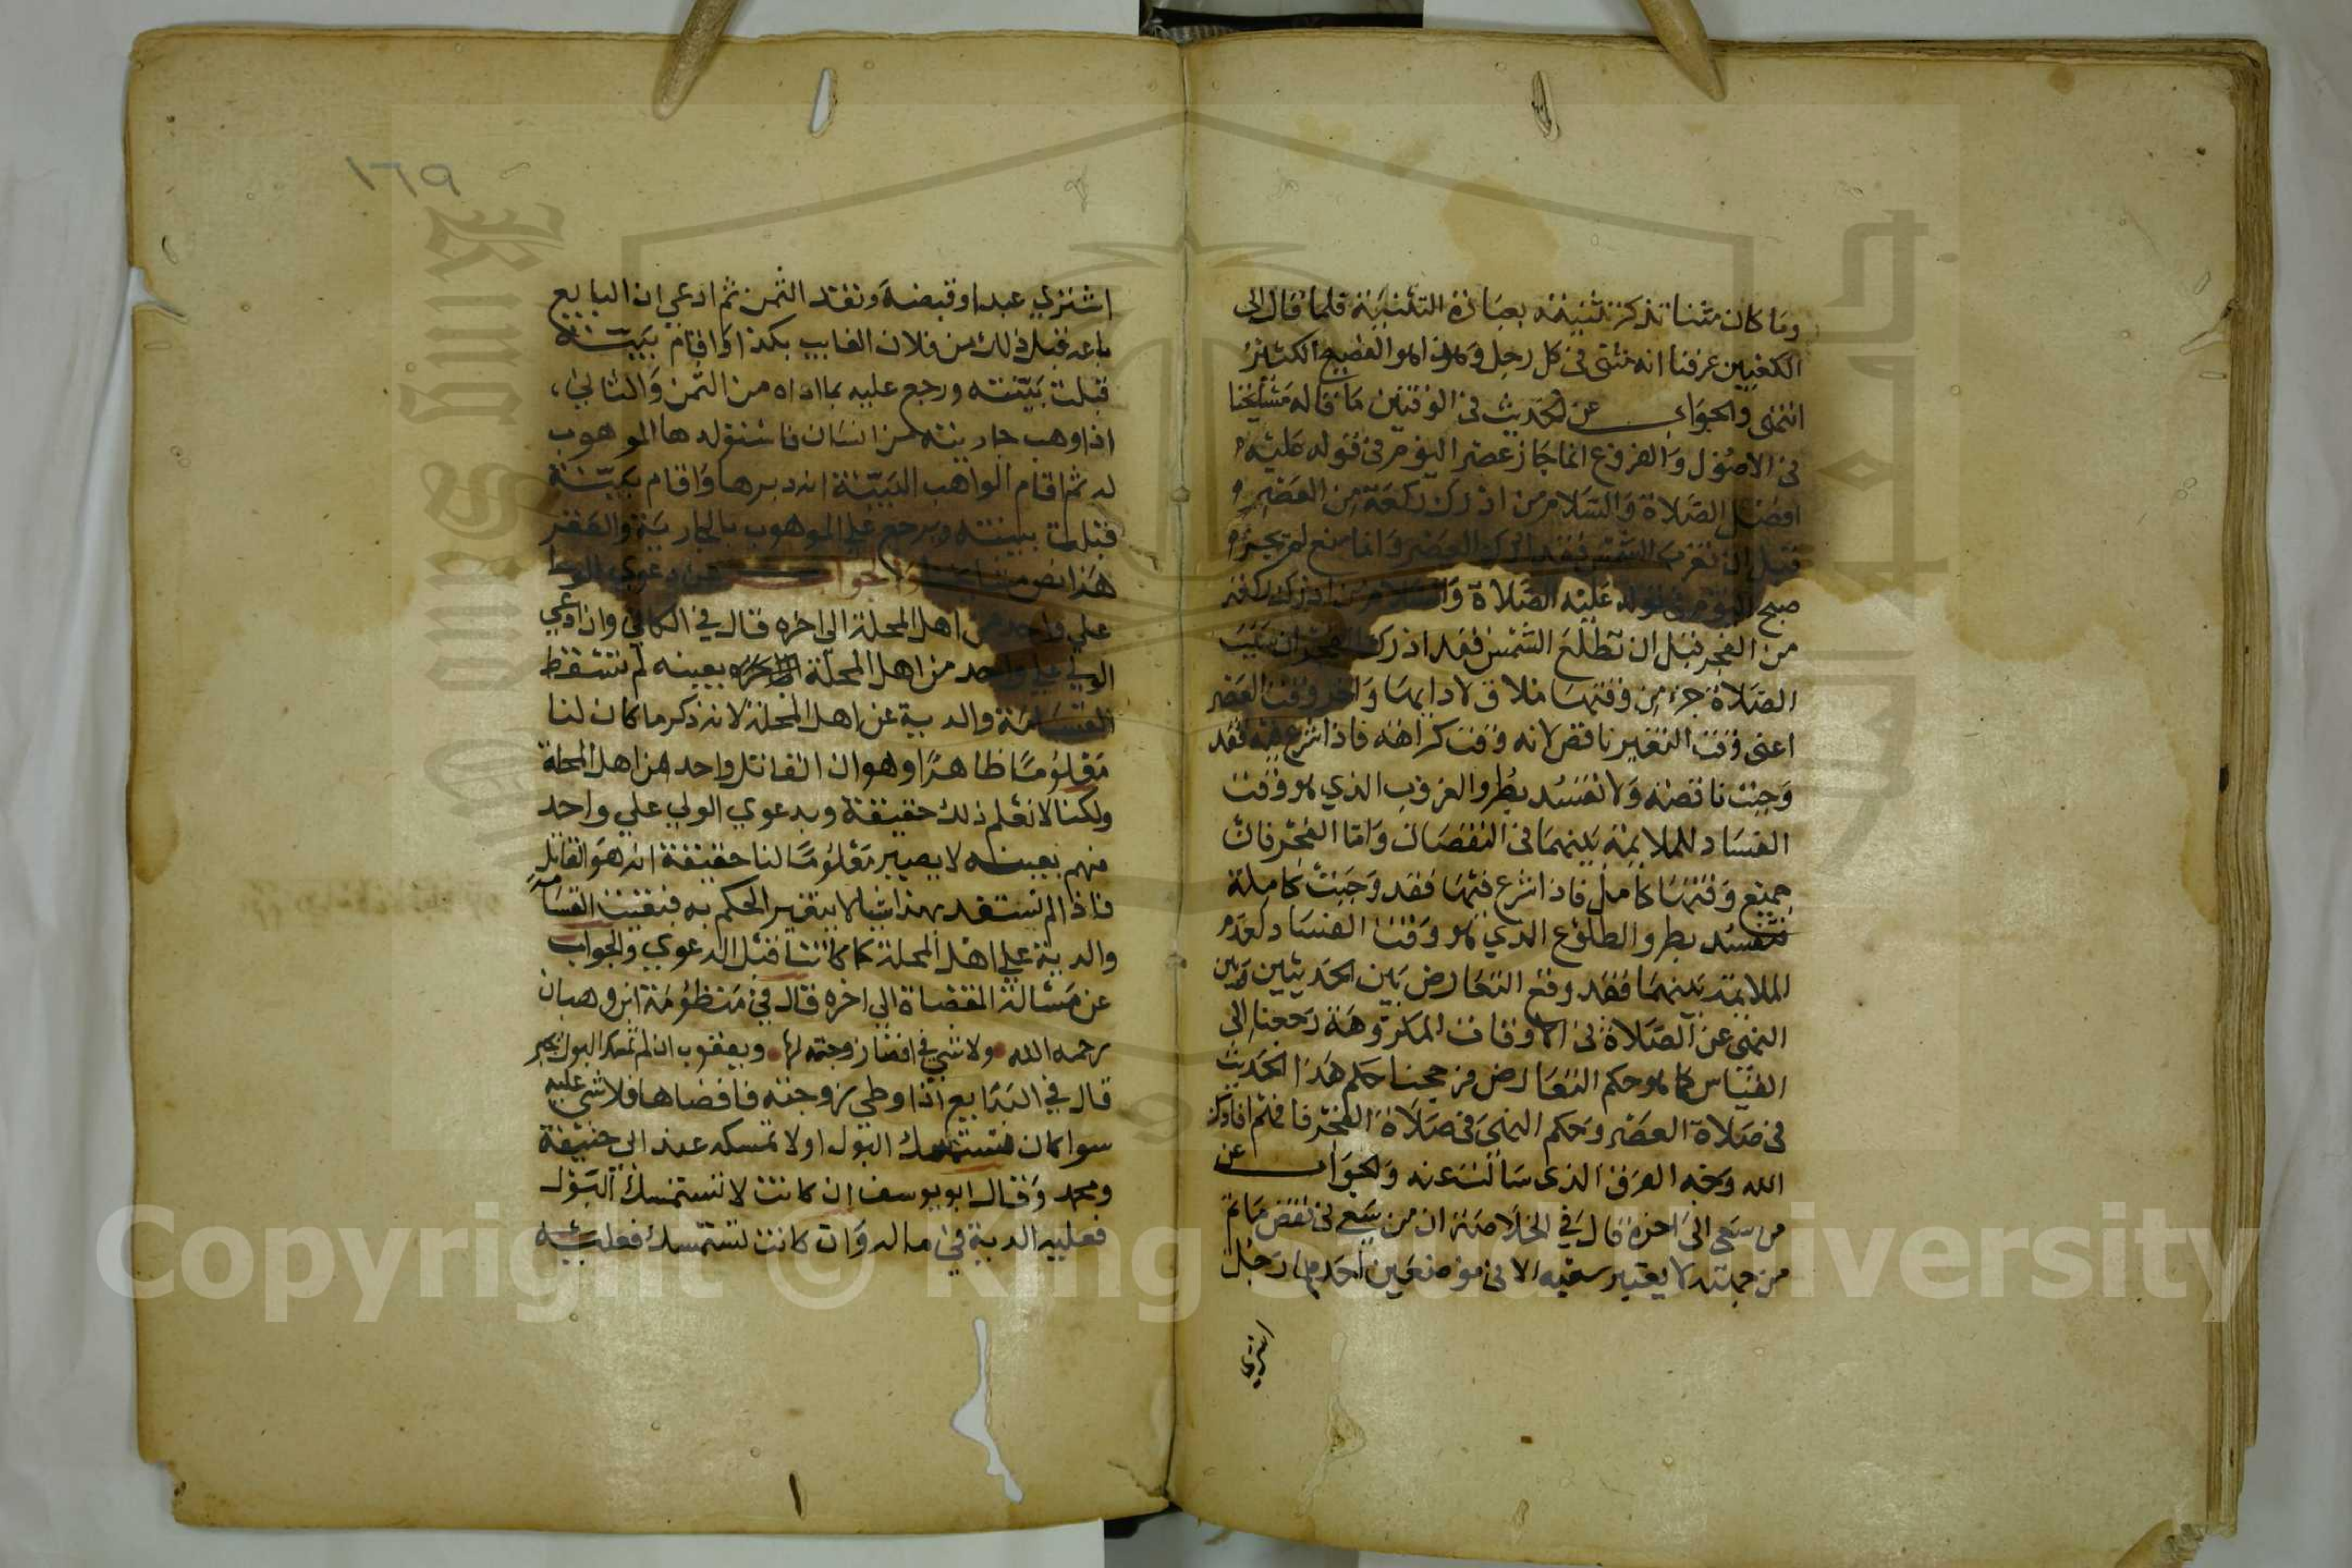 وما كان مثنا تذكر تثنيته بعبارة التثنية فلما قال الى
الكعبين عرفنا انه مثنى في كل رجل وهذا هو الفصيح الكثير
انتهى والجواب عن الحديث في الوقتين ما قاله مشايخنا
في الاصول والفروع انما جاز عصر اليوم في قوله عليه
افضل الصلاة والسلام من ادرك ركعة من العصر
قبل ان تغرب الشمس فقد ادرك العصر وانما منع لم يجز
صبح اليوم في قوله عليه الصلاة والسلام من ادرك ركعة
من الفجر قبل ان تطلع الشمس فقد ادرك الفجر ان سبب
الصلاة جزء من وقتها ملاق لادايها واخر وقت العصر
اعنى وقت التغير ناقص لانه وقت كراهة فاذا شرع فيه فقد
وجبت ناقصة ولا تفسد بطرو الغروب الذي هو وقت
الفساد للملايمة بينهما في النقصان واما الفجر فان
جميع وقتها كامل فاذا شرع فيها فقد وجبت كاملة
فتفسد بطرو الطلوع الذي هو وقت الفساد لعدم
الملايمة بينهما فقد وقع التعارض بين الحديثين وبين
النهى عن الصلاة في الاوقات المكروهة رجعنا الى
القياس كما هو حكم التعارض فرجحنا حكم هذا الحديث
في صلاة العصر وحكم النهى في صلاة الفجر فافهم افادكم
الله وجه الفرق الذى سالت عنه والجواب عن
من سعى الى اخره قال في الخلاصة ان من سعى في نقض ما تم
من جهته لا يعتبر سعيه الا في موضعين احدهما رجل
اشترى
١٦٩
اشترى عبدا وقبضه ونقد الثمن ثم ادعى ان البايع
باعه قبل ذلك من فلان الغايب بكذا واقام بينة
قبلت بينته ورجع عليه بما اداه من الثمن والثاني،
اذا وهب جاريته من انسان فاستولدها الموهوب
له ثم اقام الواهب البينة انه دبرها واقام بينة
قبلت بينته ويرجع على الموهوب بالجارية والعقر
هذا نص والجواب عن دعوى الولي
على واحد من اهل المحلة الى اخره قال في الكافي وان ادعى
الولي على واحد من اهل المحلة بعينه لم تسقط
القسامة والدية عن اهل المحلة لانه ذكر ما كان لنا
معلوما ظاهرا وهو ان القاتل واحد من اهل المحلة
ولكنا لا نعلم ذلك حقيقة وبدعوي الولي علي واحد
منهم بعينه لا يصير معلوما لنا حقيقة انه هو القاتل
فاذا لم نستفد بهذا شيا لا يتغير الحكم به فبقيت القسامة
والدية على اهل المحلة كما كانتا قبل الدعوي والجواب
عن مسالة المفضاة الى اخره قال في منظومة ابن وهبان
رحمه الله ولا شي في افضا زوجته لها ويعقوب ان لم تمسك البول يجبر
قال في البدايع اذا وطى زوجته فافضاها فلا شي عليه
سوا كان تستمسك البول او لا تمسكه عند ابي حنيفة
ومحمد وقال ابو يوسف ان كانت لا تستمسك البول
فعليه الدية في ماله وان كانت تستمسك فعليه
Copyright © King Saud University